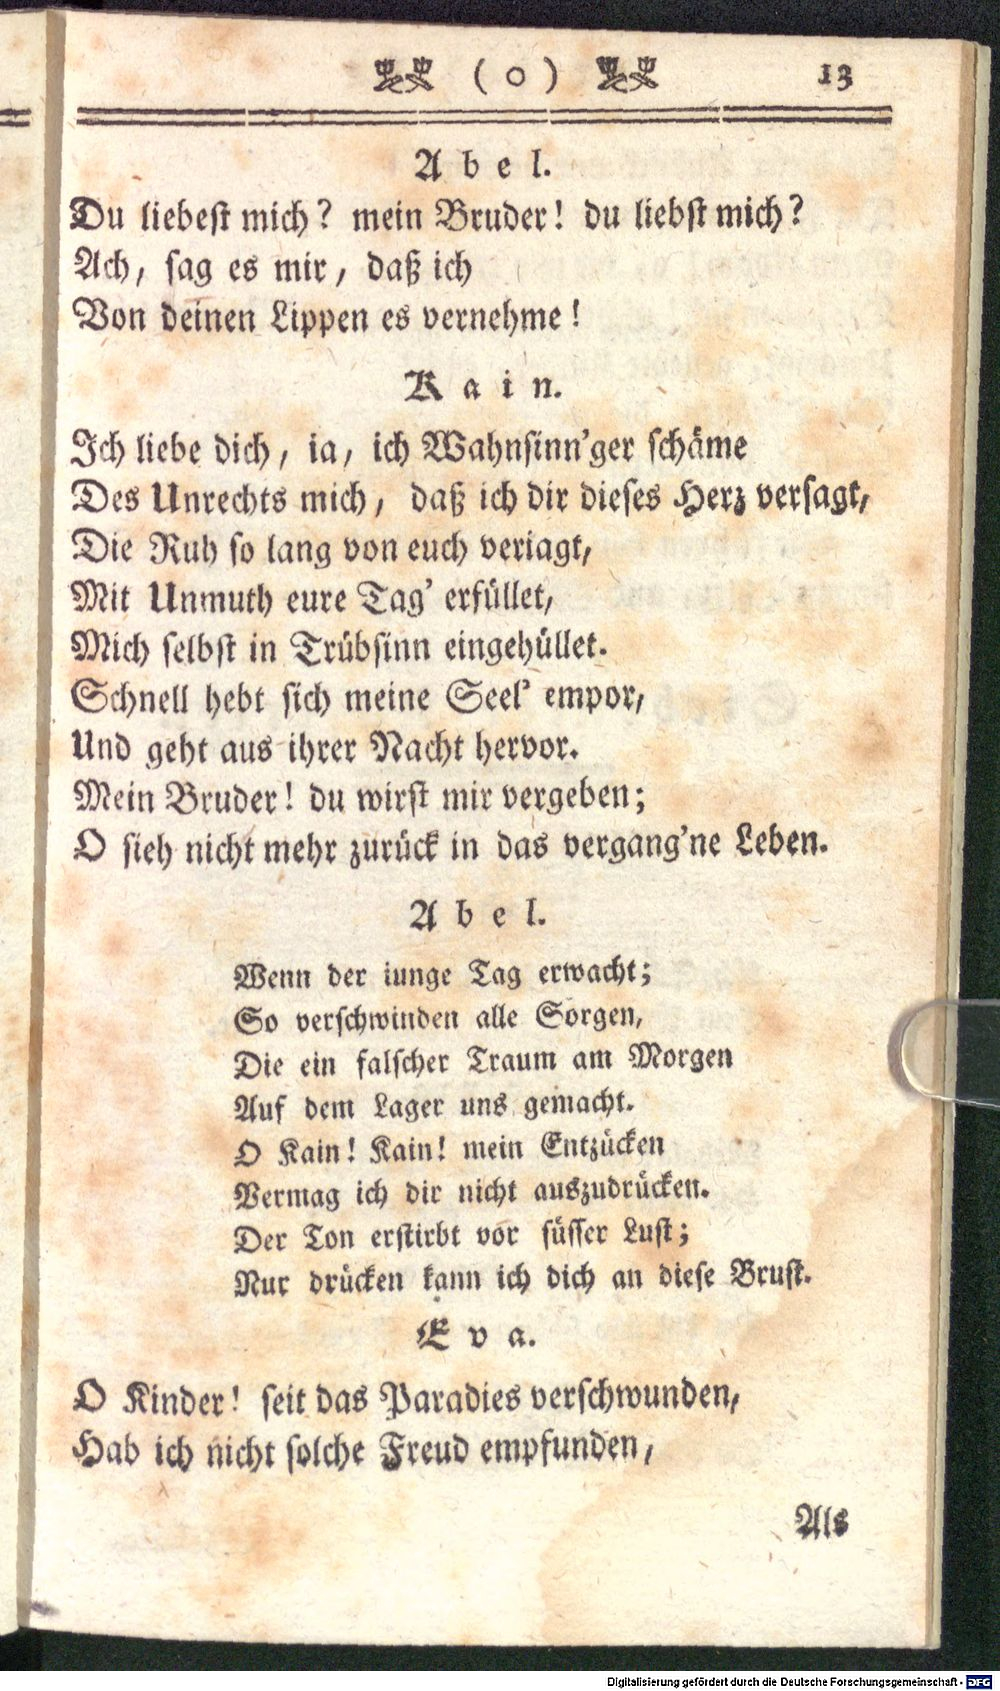 ( o ) 13
Abel.
Du liebest mich? mein Bruder! du liebst mich?
Ach, sag es mir, daß ich
Von deinen Lippen es vernehme!
Kain.
Ich liebe dich, ia, ich Wahnsinn'ger schäme
Des Unrechts mich, daß ich dir dieses Herz versagt,
Die Ruh so lang von euch veriagt,
Mit Unmuth eure Tag' erfüllet,
Mich selbst in Trübsinn eingehüllet.
Schnell hebt sich meine Seel' empor,
Und geht aus ihrer Nacht hervor.
Mein Bruder! du wirst mir vergeben;
O sieh nicht mehr zurück in das vergang'ne Leben.
Abel.
Wenn der iunge Tag erwacht;
So verschwinden alle Sorgen,
Die ein falscher Traum am Morgen
Auf dem Lager uns gemacht.
O Kain! Kain! mein Entzücken
Vermag ich dir nicht auszudrücken.
Der Ton erstirbt vor süsser Lust;
Nur drücken kann ich dich an diese Brust.
Eva.
O Kinder! seit das Paradies verschwunden,
Hab ich nicht solche Freud empfunden,
Als
Digitalisierung gefördert durch die Deutsche Forschungsgemeinschaft - DFG